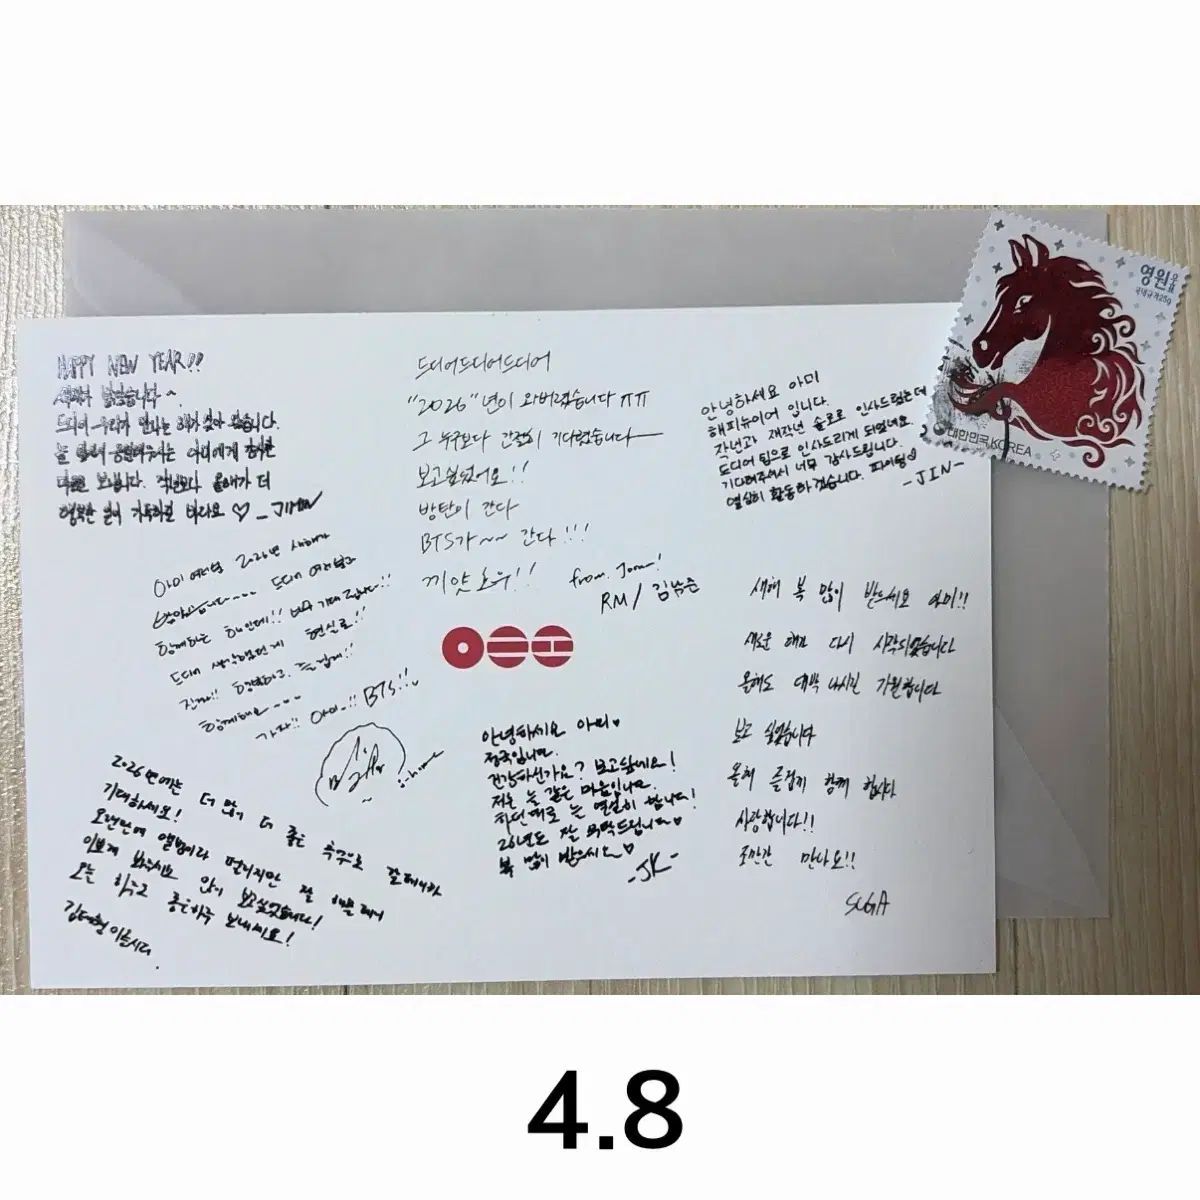 HAPPY NEW YEAR!!
새해가 밝았습니다~
드디어 우리가 만나는 해가 찾아 왔습니다.
늘 멀리서 응원해주시는 아미에게 감사한
마음을 보냅니다. 작년보다 올해가 더
행복한 일이 가득하길 바라요 ♡ _JIMIN
드디어드디어드디어
"2026"년이 와버렸습니다 ㅠㅠ
그 누구보다 간절히 기다렸습니다
보고싶었어요!!
방탄이 간다
BTS가~~ 간다!!!
끼얏호우!!
from. Joon!
RM / 김남준
안녕하세요 아미
해피뉴이어 입니다.
작년과 재작년 솔로로 인사드렸는데
드디어 팀으로 인사드리게 되었네요.
기다려주셔서 너무 감사드립니다.
열심히 활동하겠습니다. 파이팅♡
-JIN-
영원 우표
국내규격25g
대한민국 KOREA
아미 여러분 2026년 새해가
밝았습니다.... 드디어 여러분과
함께하는 해인데!! 너무 기대됩니다!!
드디어 생각했던게 현실로!!
진짜!! 행복하고 즐겁게!!
함께해요....
가자!! 아미..!! BTS!!
j-hope
새해 복 많이 받으세요 아미!!
새로운 해가 다시 시작되었습니다
올해도 대박 나시길 기원합니다
보고 싶었습니다
올해 즐겁게 함께 합시다
사랑합니다!!
조만간 만나요!!
SUGA
안녕하세요 아미♥
정국입니다.
건강하신가요? 보고싶네요!
저는 늘 같은 마음입니다.
하던대로 늘 열심히 합니다!
26년도 잘 부탁드립니다♥
복 많이 받으시오♡
-JK-
2026년에는 더 많이 더 좋은 추억으로 갈테니까
기대하세요!
오랜만에 앨범이라 떨리지만 잘 해볼테니
이쁘게 봐주시요 많이 보고싶었습니다!
오늘 하루도 좋은하루 보내세요!
김태형이올시다.
4.8